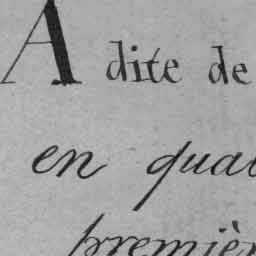 A dite de
en qua
premièr